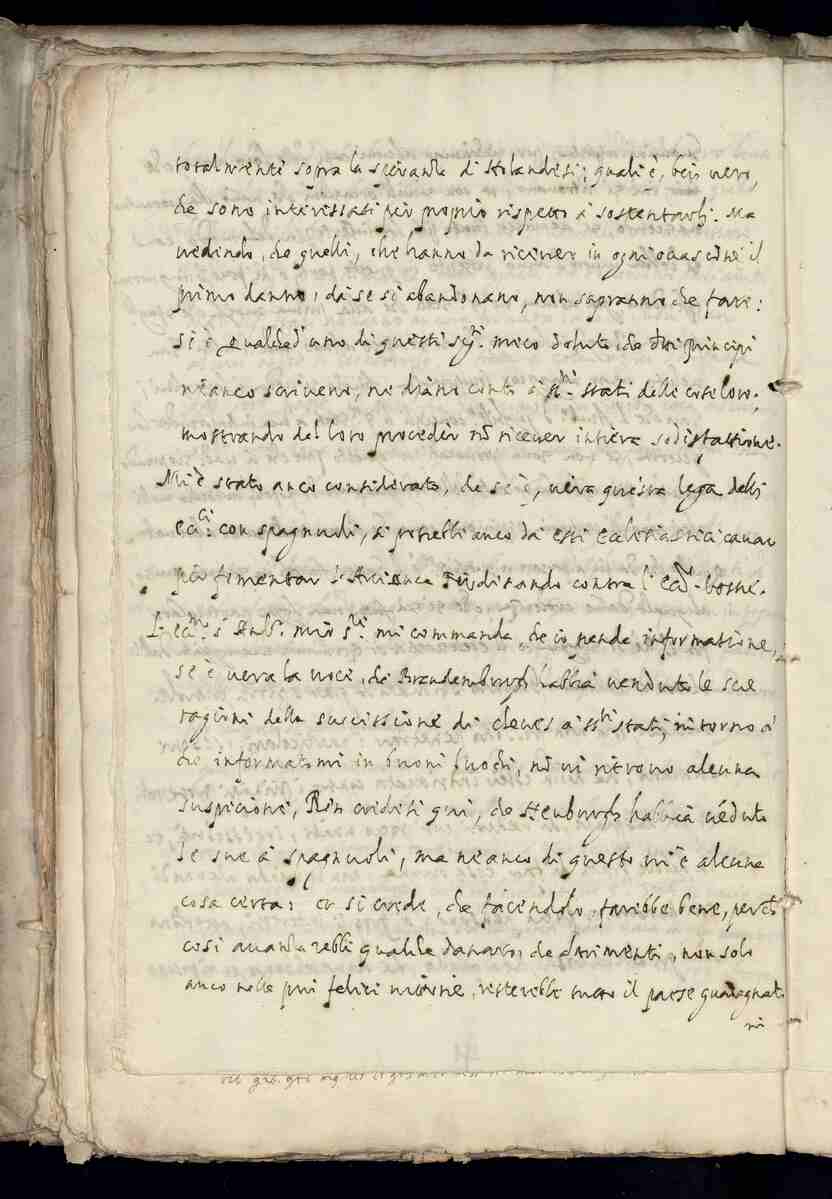 totalmente sopra la speranza di Holandesi; quali è, ben vero,
che sono interessati per proprio rispetto à sostentarli. Ma
vedendo, che quelli, che hanno da ricever in ogni occasione il
primo danno, da se si abandonano, non sapranno che fare:
si è qualched'uno di questi sig.ri meco doluto, che detti principi
neanco scriveno, ne diano conto à ss.ri stati delle cose loro,
mostrando del loro proceder nõ ricever intiera sodisfattione.
Mi è stato anco considerato, che se è vera questa lega delli
ecc.ci con spagnuoli, si potrebbe anco da essi Eclesiastici cavar
per fomentar l'Arciduca Ferdinando contra l'Ecc.
L'ecc.mo s. Amb.r mio s.re mi commanda, che io prenda informatione,
se è vera la voce, che Brandemburgh habbia venduto le sue
ragioni della successione di cleves à ss.ri stati, intorno à
che informatomi in buoni luochi, nõ vi ritrovo alcuna
suspicione, Ben credesi qui, che Neuburgh habbia vẽduto
le sue à spagnuoli, ma neanco di questo vi è alcuna
cosa certa: et si crede, che facendolo, farebbe bene, perche
cosi avanzarebbe qualche danaro, che altrimenti, non solo
anco nelle piu felici vittorie, resterebbe tutto il paese